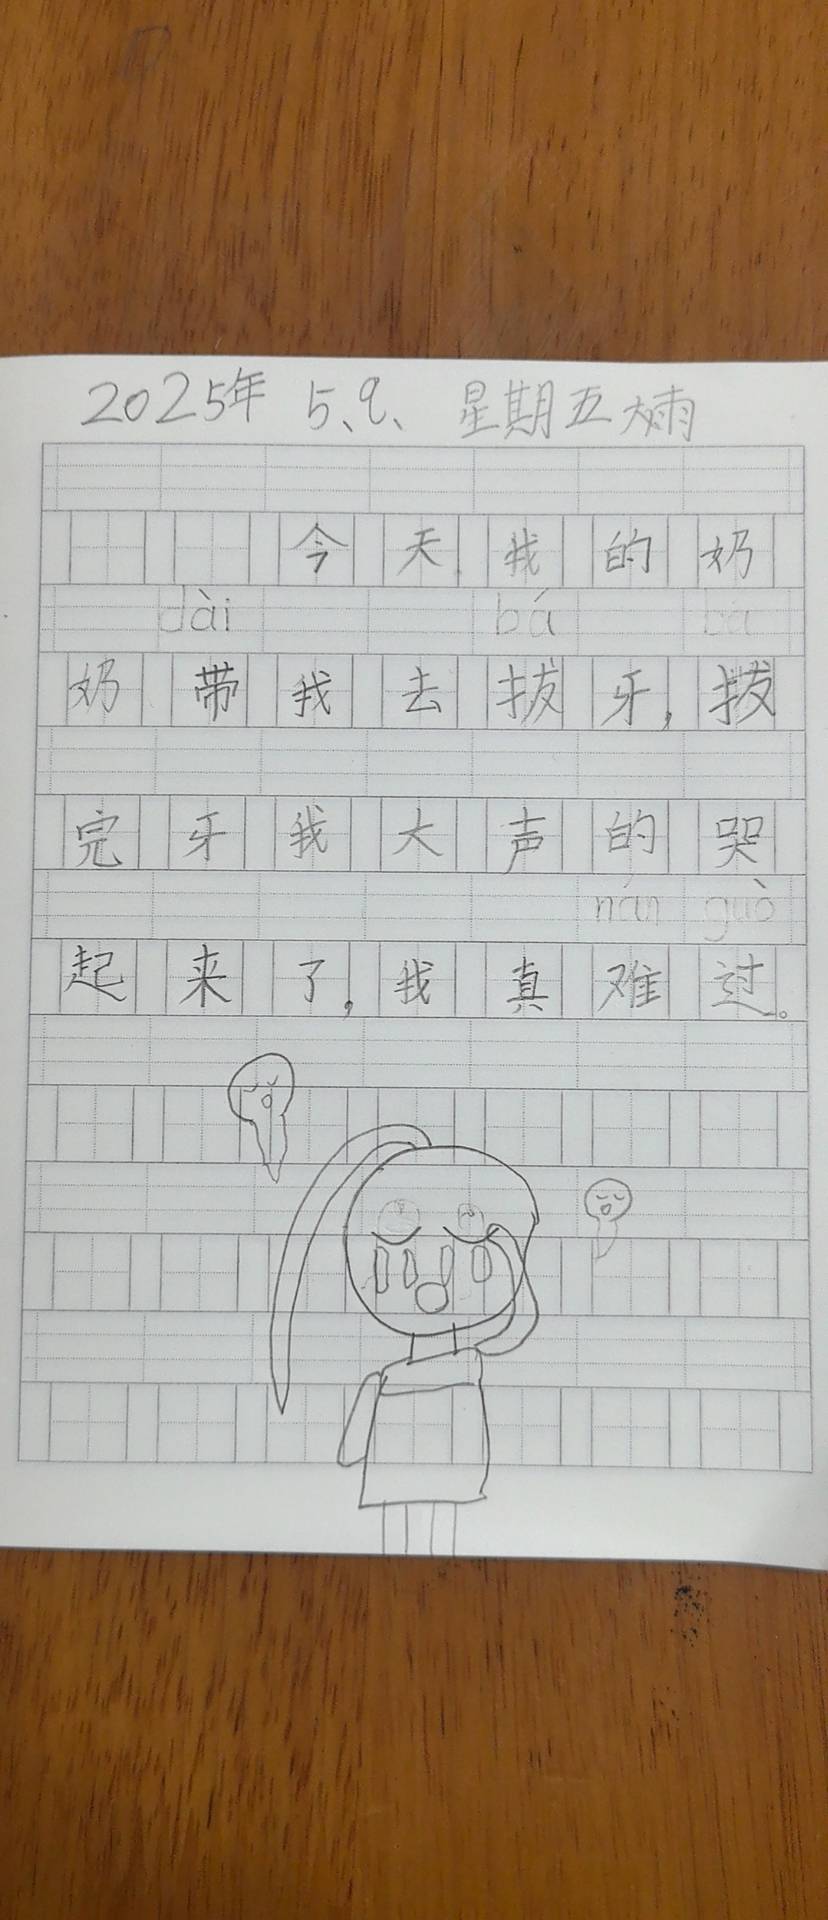 2025年 5、9、 星期五 大雨
今天我的奶
dài bá bá
奶带我去拔牙，拔
完牙我大声的哭
nán guò
起来了，我真难过。